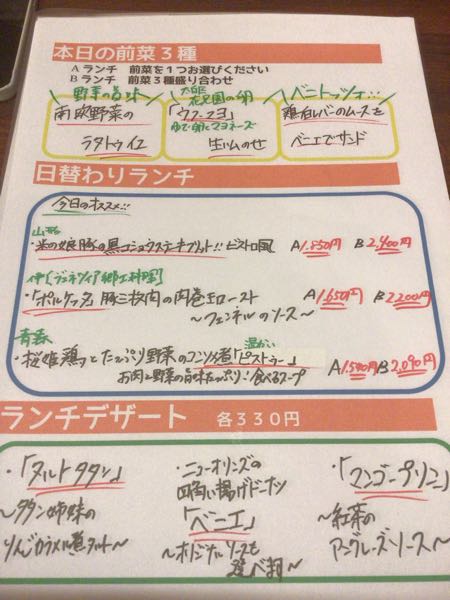 本日の前菜3種
Aランチ 前菜を1つお選びください
Bランチ 前菜3種盛り合わせ
野菜の旨味
南欧野菜の
ラタトゥイユ
花見園の卵
「ウフマヨ」
ゆで卵とマヨネーズ
生ハムのせ
ベニトッツォ!!
鶏白レバーのムースを
ベニエでサンド
日替わりランチ
今日のオススメ!!
山形
・米の娘豚の黒コショウステーキフリット!! ビストロ風 A1,850円 B2,400円
伊(ヴェネツィア郷土料理)
・「ポルケッタ」豚三枚肉の肉巻きロースト A1,650円 B2,200円
〜フェンネルのソース〜
青森 温かい
・桜姫鶏とたっぷり野菜のコンソメ煮「ピストゥー」 A1,540円 B2,090円
お肉と野菜の旨味たっぷり!食べるスープ
ランチデザート 各330円
・「タルトタタン」
〜タタン姉妹の
りんごカラメル煮タルト〜
・ニューオリンズの
四角い揚げドーナツ
「ベニエ」
〜オリジナルソースも
選べます〜
・「マンゴープリン」
〜紅茶の
アングレーズソース〜